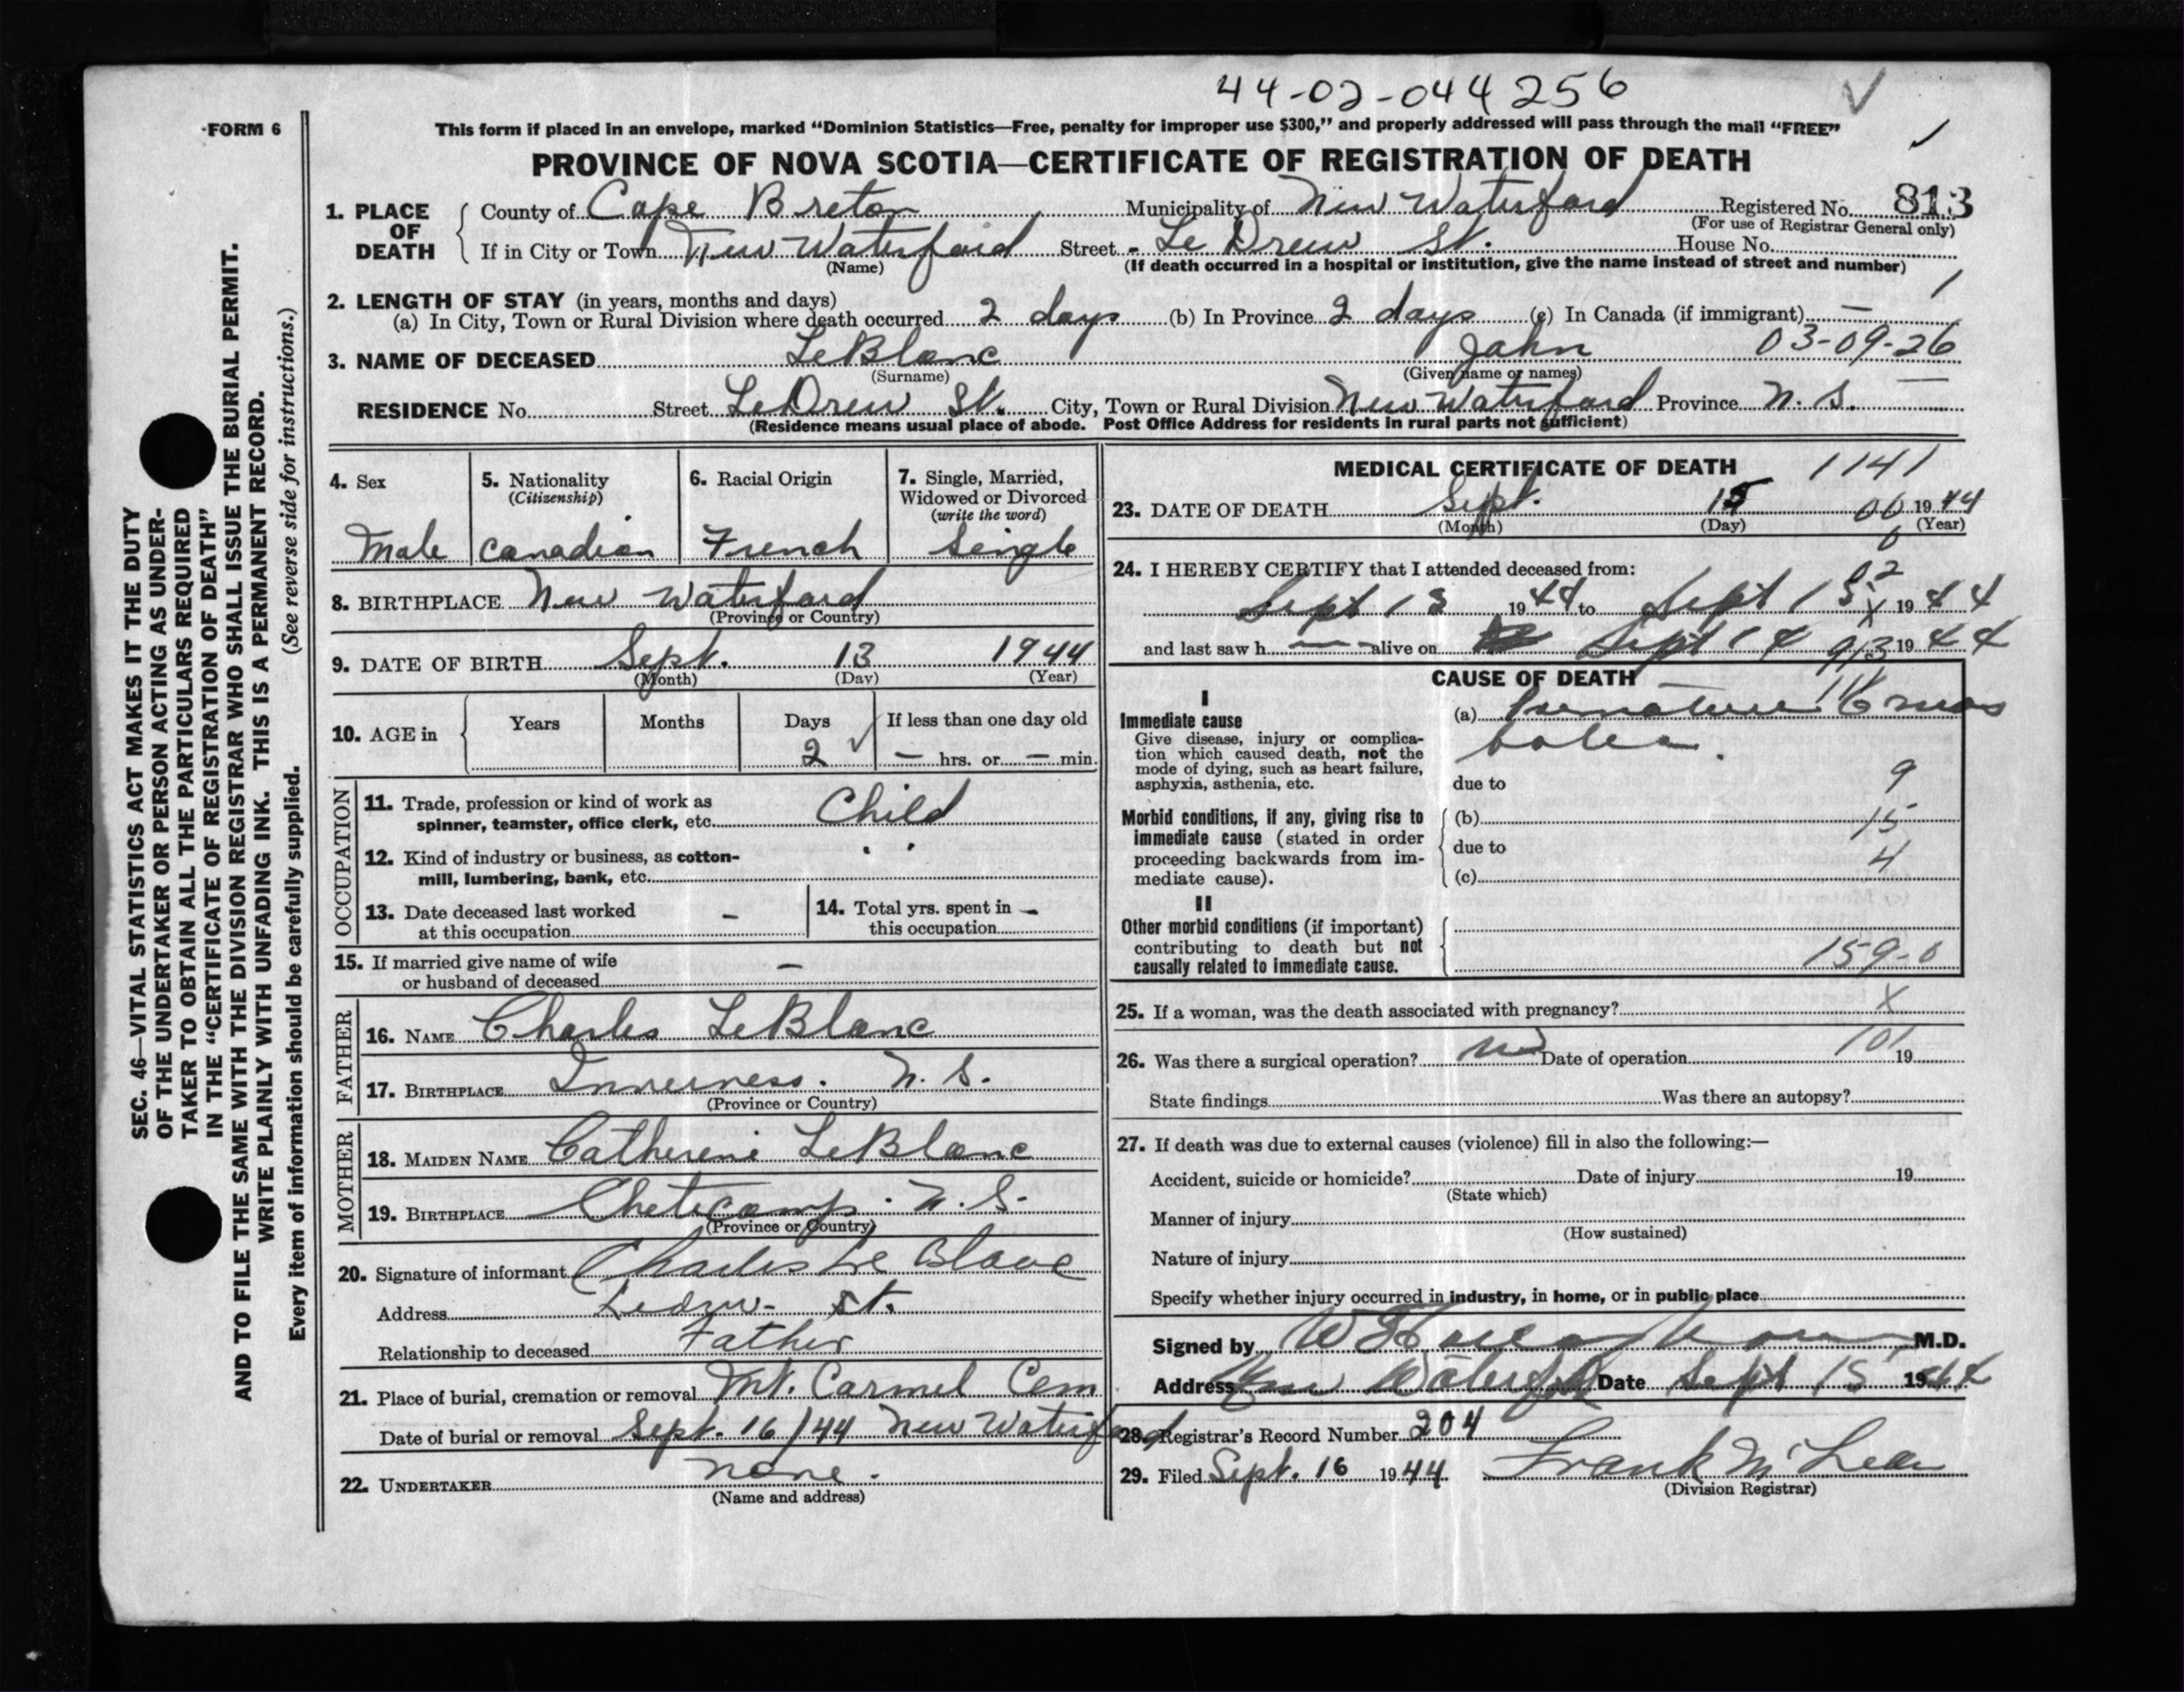 44-02-044256
FORM 6
This form if placed in an envelope, marked “Dominion Statistics—Free, penalty for improper use $300,” and properly addressed will pass through the mail “FREE”
PROVINCE OF NOVA SCOTIA—CERTIFICATE OF REGISTRATION OF DEATH
1. PLACE OF DEATH
County of Cape Breton Municipality of New Waterford Registered No. 813
(For use of Registrar General only)
If in City or Town New Waterford Street - Le Drew St. House No.
(Name) (If death occurred in a hospital or institution, give the name instead of street and number)
2. LENGTH OF STAY (in years, months and days)
(a) In City, Town or Rural Division where death occurred 2 days (b) In Province 2 days (c) In Canada (if immigrant) — 1
3. NAME OF DECEASED LeBlanc John 03-09-26
(Surname) (Given name or names)
RESIDENCE No. Street LeDrew St. City, Town or Rural Division New Waterford Province N. S. —
(Residence means usual place of abode. Post Office Address for residents in rural parts not sufficient)
4. Sex
Male
5. Nationality
(Citizenship)
Canadian
6. Racial Origin
French
7. Single, Married,
Widowed or Divorced
(write the word)
Single
8. BIRTHPLACE New Waterford
(Province or Country)
9. DATE OF BIRTH Sept. 13 1944
(Month) (Day) (Year)
10. AGE in Years Months Days If less than one day old
2 — hrs. or — min.
OCCUPATION
11. Trade, profession or kind of work as
spinner, teamster, office clerk, etc. Child
12. Kind of industry or business, as cotton-
mill, lumbering, bank, etc. " "
13. Date deceased last worked
at this occupation —
14. Total yrs. spent in —
this occupation
15. If married give name of wife
or husband of deceased —
FATHER
16. NAME Charles LeBlanc
17. BIRTHPLACE Inverness. N. S.
(Province or Country)
MOTHER
18. MAIDEN NAME Catherine LeBlanc
19. BIRTHPLACE Cheticamp. N. S.
(Province or Country)
20. Signature of informant Charles Le Blanc
Address Ledrw- St.
Relationship to deceased Father
21. Place of burial, cremation or removal Mt. Carmel Cem
Date of burial or removal Sept. 16/44 New Waterford
22. UNDERTAKER none.
(Name and address)
MEDICAL CERTIFICATE OF DEATH 1141
23. DATE OF DEATH Sept. 15 06 1944
(Month) (Day) (Year)
24. I HEREBY CERTIFY that I attended deceased from:
Sept 13 1944 to Sept 15 1944
and last saw h — alive on Sept 14 1944
CAUSE OF DEATH
I
Immediate cause
Give disease, injury or complica-
tion which caused death, not the
mode of dying, such as heart failure,
asphyxia, asthenia, etc.
(a) Premature 6 mos
due to 9
Morbid conditions, if any, giving rise to
immediate cause (stated in order
proceeding backwards from im-
mediate cause).
(b) 15
due to 4
(c)
II
Other morbid conditions (if important)
contributing to death but not
causally related to immediate cause.
159-0
25. If a woman, was the death associated with pregnancy? X
26. Was there a surgical operation? no Date of operation 101 19
State findings Was there an autopsy?
27. If death was due to external causes (violence) fill in also the following:—
Accident, suicide or homicide? Date of injury 19
(State which)
Manner of injury
(How sustained)
Nature of injury
Specify whether injury occurred in industry, in home, or in public place
Signed by M.D.
Address New Waterford Date Sept 15 1944
28. Registrar's Record Number 204
29. Filed Sept. 16 1944 Frank McLean
(Division Registrar)
SEC. 46—VITAL STATISTICS ACT MAKES IT THE DUTY
OF THE UNDERTAKER OR PERSON ACTING AS UNDER-
TAKER TO OBTAIN ALL THE PARTICULARS REQUIRED
IN THE “CERTIFICATE OF REGISTRATION OF DEATH”
AND TO FILE THE SAME WITH THE DIVISION REGISTRAR WHO SHALL ISSUE THE BURIAL PERMIT.
WRITE PLAINLY WITH UNFADING INK. THIS IS A PERMANENT RECORD.
Every item of information should be carefully supplied. (See reverse side for instructions.)